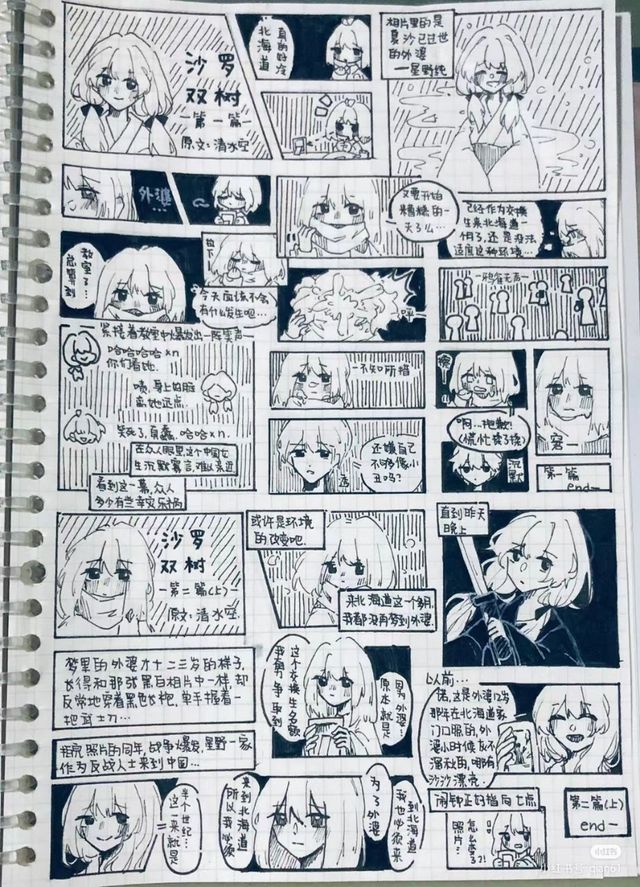 沙罗
双树
—第一篇—
原文：清水空
真的好冷
北海道
相片里的是
夏沙已过世
的外婆
—星野纯
外婆…
又要开始
糟糕的一
天了么…
已经作为交换
生来北海道
1个月了，还是没法
适应这种环境…
教室了…
总算到
拉下
今天应该不会
有什么发生吧…
呼
—鸦雀无声—
紧接着教室中爆发出一阵笑声
哈哈哈哈xn
你们看她.
咦，身上好脏
离她远点
笑死了，真蠢.哈哈xn.
在众人眼里这个中国女
生沉默寡言，难以亲近
看到这一幕，众人
多少有些幸灾乐祸
—不知所措
还嫌自己
不够像小
丑吗？
啊…抱歉！
沉默
窘—
第一篇
end—
沙罗
双树
—第二篇(上)—
原文：清水空
或许是环境
的改变吧.
来北海道这一个多月，
我都没再梦到外婆.
直到昨天
晚上
梦里的外婆才十二三岁的样子，
长得和那张黑白相片中一样，却
反常地穿着黑色长袍，单手握着一
把武士刀…
拍完照片的同年，战争爆发，星野一家
作为反战人士来到中国…
因为外婆！
原本就是
这个交换生名额
我努力争取到
以前…
喏，这是外婆12岁
那年在北海道家
门口照的，外
婆小时候灰不
溜秋的，哪有
沙沙漂亮.
半个世纪…
这一来就是
来到北海道
所以我必须
为了外婆
我也必须来
到北海道
闹钟正好指向七点
怎么变了？！
照片…
第二篇(上)
end—
小红书